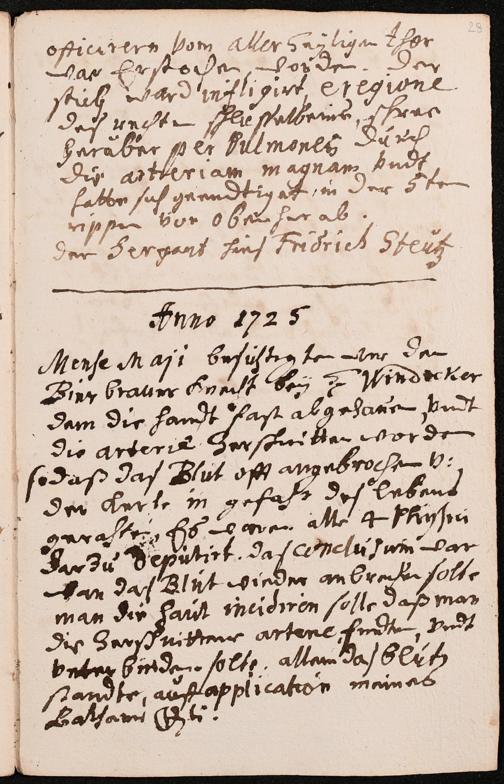 28
officirern vom aller heyligen thor
war erstochen worden. Der
stich ward infligirt, e regione
deß rechten schlisselbeins, schree
herüber per Pulmones durch
die arteriam magnam vndt
hatte sich geendtiget, in der 5ten
rippen von oben herab.
der Sergant hieß Fridrich Steütz
Anno 1725
Mense Maji besichtigten wir den
Bierbrauer knecht bey H Windecker
dem die handt fast abgehauen vndt
die arterie zerschnitten worden
so daß das Blut offt angebrochen v:
der Kerle in gefahr deß lebens
gerahten. Es waren alle 4 Physici
darzu deputirt. das conclusum war
wan das Blut wieder anbrechen solte
man die haut incidiren solle daß man
die zerschnittene arterie finden, vndt
vnterbinden solte. allein das blut
standte, auff application meines
Balsami